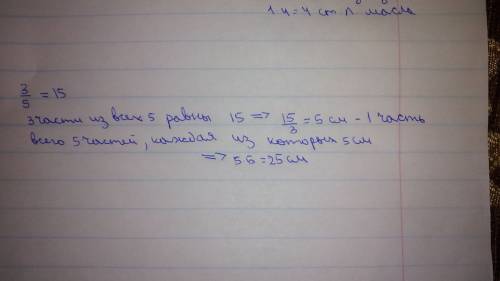 1·4=4 ст л. масла
3/5 = 15
3 части из всех 5 равны 15 => 15/3 = 5 см - 1 часть
всего 5 частей, каждая из которых 5 см
=> 5·5=25 см